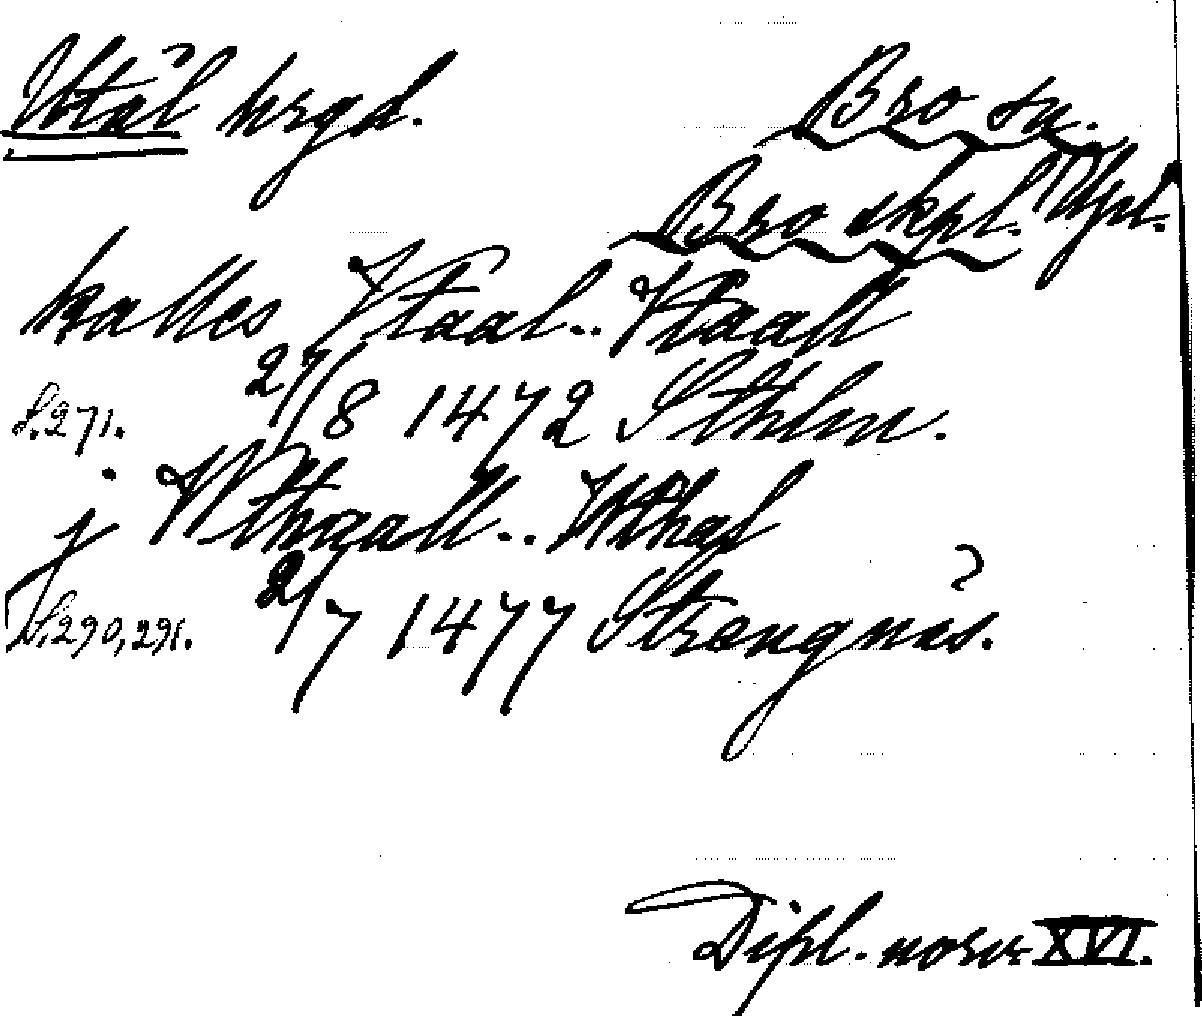 Utål hrgd. Bro sn.
Bro skpl. Uppl.
kalles Vtaal.. Vtaall
S.271. 27/8 1472 Sthlm.
j Wthaall.. Wthal
S.290,291. 2/7 1477 Strengnäs.
Dipl. norv. XVI.